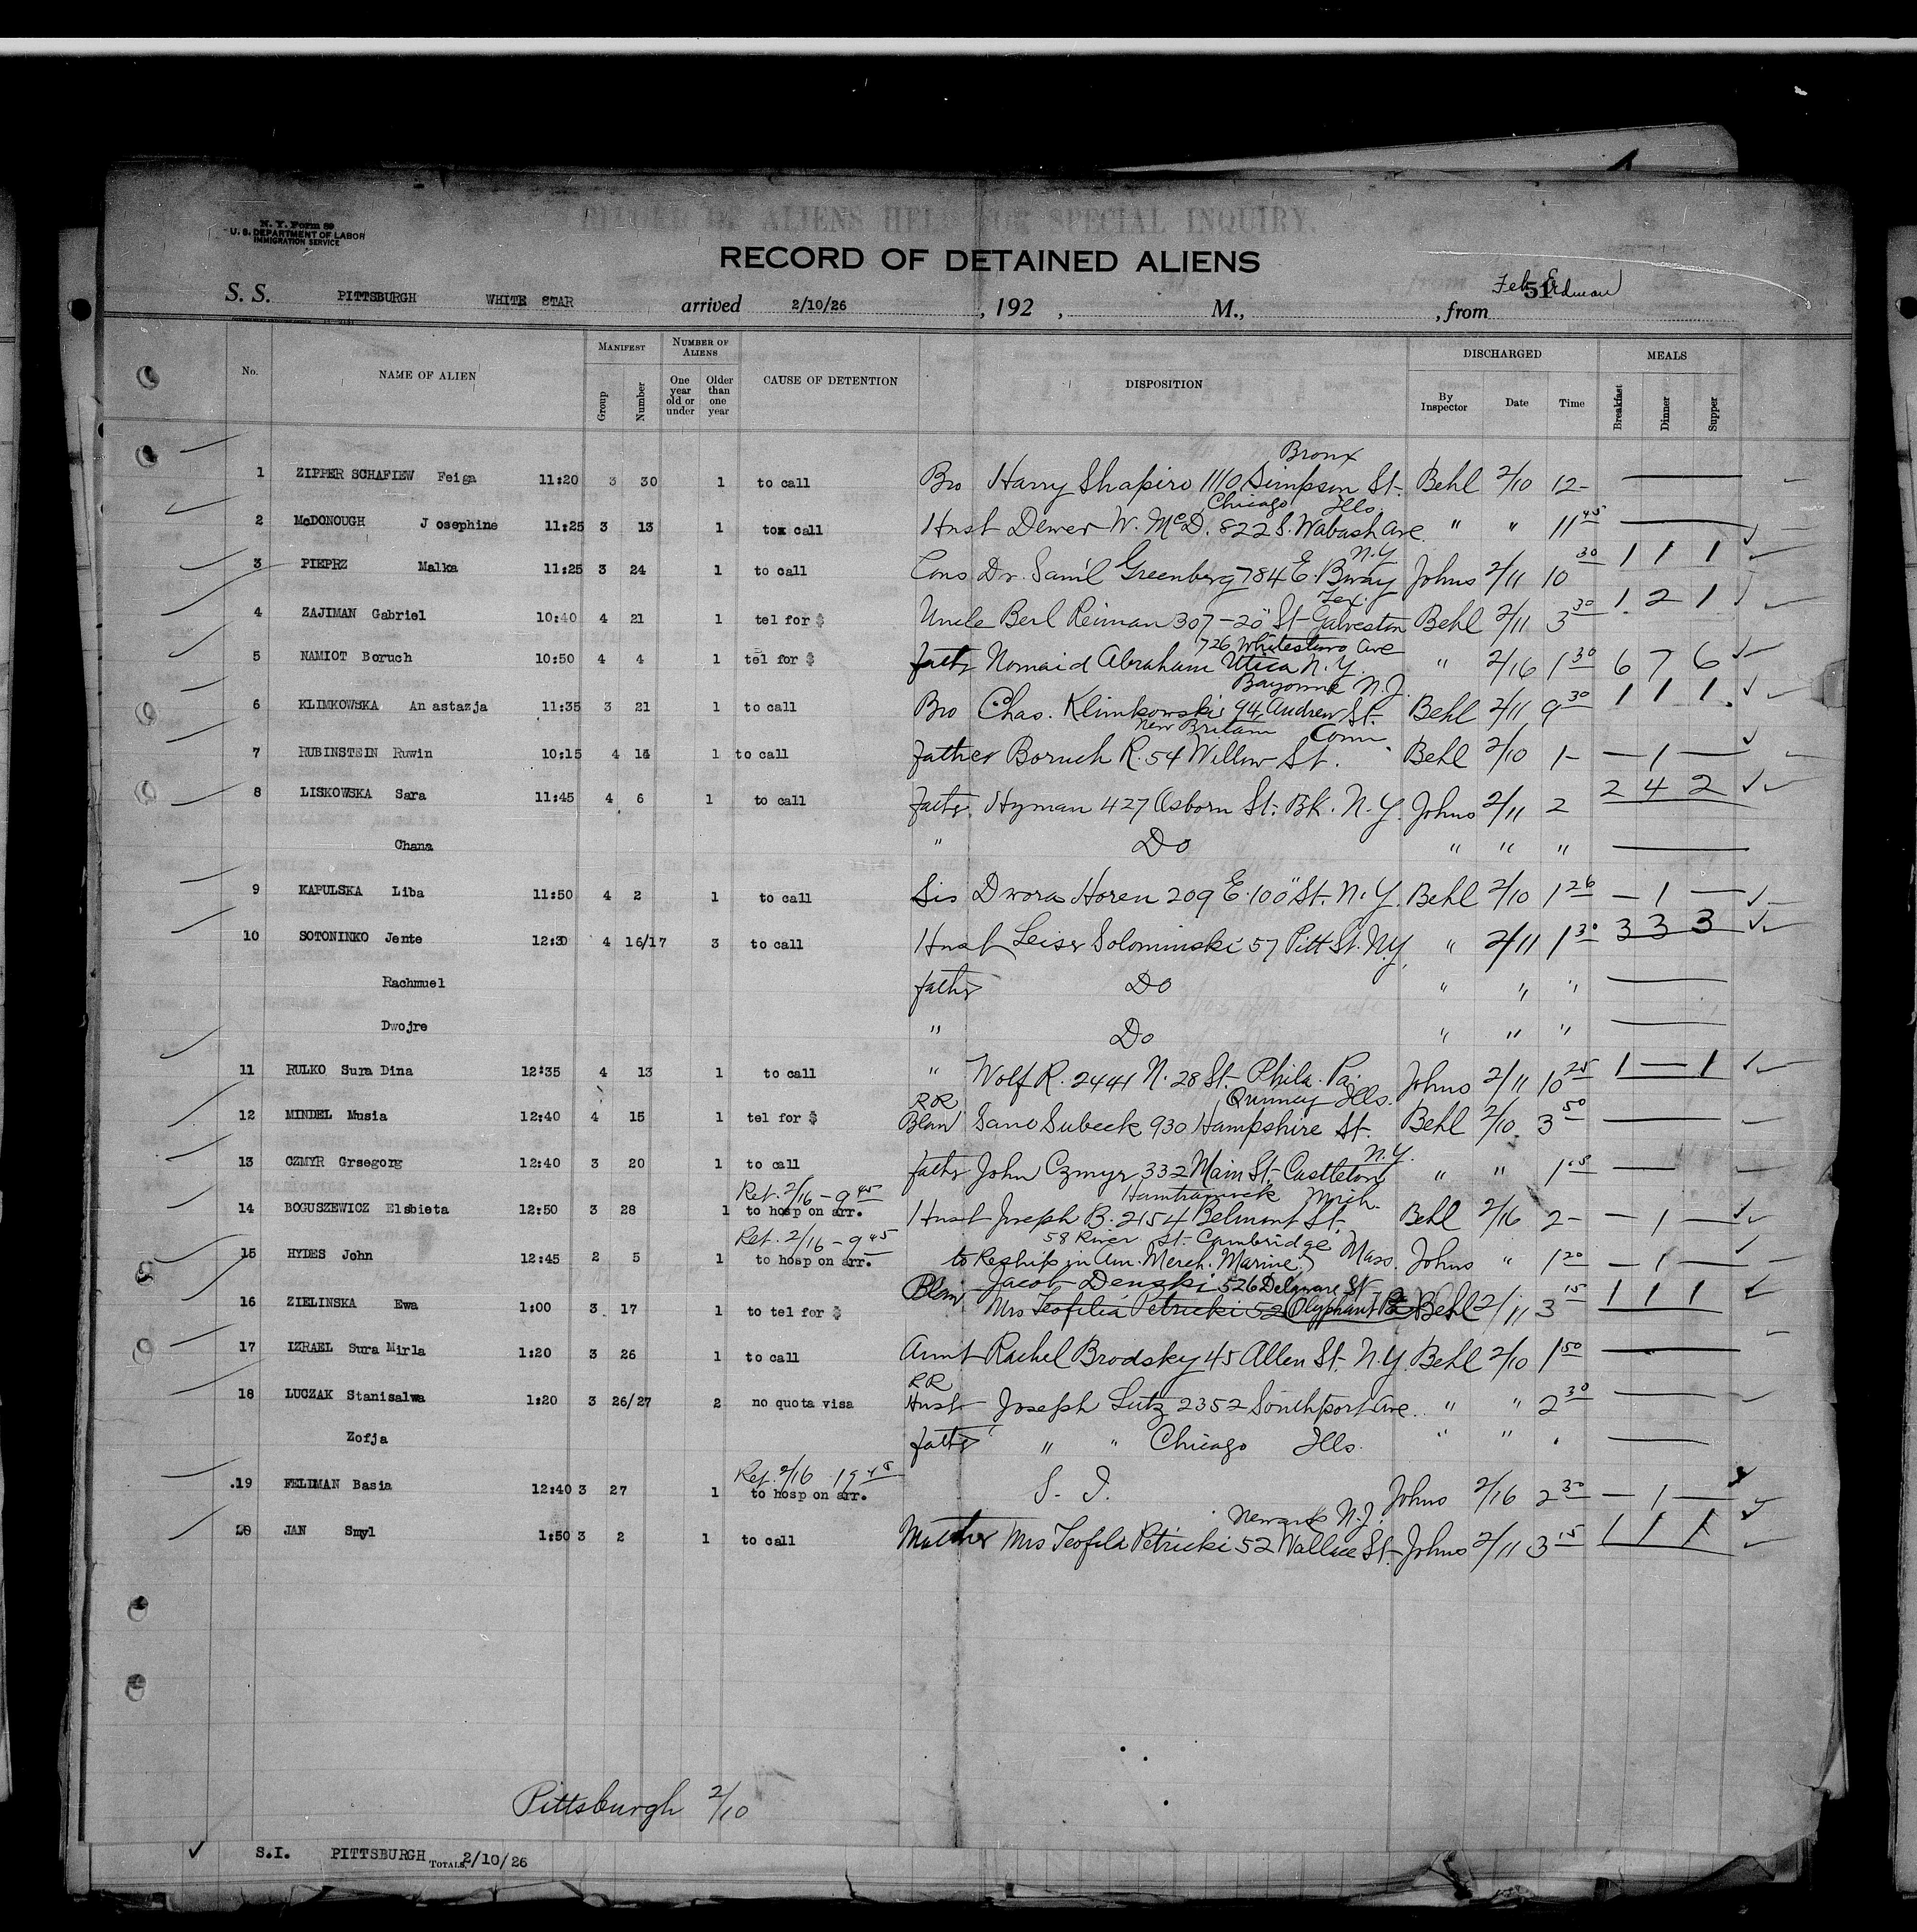 N. Y. Form 89
U. S. DEPARTMENT OF LABOR
IMMIGRATION SERVICE
ALIENS HELD FOR SPECIAL INQUIRY.
RECORD OF DETAINED ALIENS
S. S. PITTSBURGH WHITE STAR arrived 2/10/26 , 192 , M., , from 51
No. NAME OF ALIEN MANIFEST Group Number NUMBER OF ALIENS One year old or under Older than one year CAUSE OF DETENTION DISPOSITION DISCHARGED By Inspector Date Time MEALS Breakfast Dinner Supper
Bronx
1 ZIPPER SCHAFIEW Feiga 11:20 3 30 1 to call Bro Harry Shapiro 1110 Simpson St. Behl 2/10 12-
Chicago Ills.
2 McDONOUGH J osephine 11:25 3 13 1 tox call Husb Dewer W. McD. 822 S. Wabash Ave. " " 11 45
N.Y.
3 PIEPRZ Malka 11:25 3 24 1 to call Cons Dr. Saml Greenberg 784 E. Bway Johns 2/11 10 30 1 1 1
Tex.
4 ZAJIMAN Gabriel 10:40 4 21 1 tel for $ Uncle Berl Reiman 307-20" St Galveston Behl 2/11 3 30 1 2 1
726 Whitesboro Ave
5 NAMIOT Boruch 10:50 4 4 1 tel for $ fathr Nomaid Abraham Utica N.Y. " 2/16 1 30 6 7 6
Bayonne N.J.
6 KLIMKOWSKA An astazja 11:35 3 21 1 to call Bro Chas. Klimkowski 94 Andrew St. Behl 2/11 9 30 1 1 1
New Britain Conn.
7 RUBINSTEIN Ruwin 10:15 4 14 1 to call father Boruch R. 54 Willow St. Behl 2/10 1- — 1 —
8 LISKOWSKA Sara 11:45 4 6 1 to call fathr. Hyman 427 Osborn St. Bk. N.Y. Johns 2/11 2 2 4 2
Chana " Do " " "
9 KAPULSKA Liba 11:50 4 2 1 to call Sis Dwora Horen 209 E. 100" St. N.Y. Behl 2/10 1 26 — 1 —
10 SOTONINKO Jente 12:30 4 16/17 3 to call Husb Leiser Solominski 57 Pitt St. N.Y. " 2/11 1 30 3 3 3
Rachmuel fathr Do " " "
Dwojre " Do " " "
11 RULKO Sura Dina 12:35 4 13 1 to call " Wolf R. 2441 N. 28 St. Phila. Pa. Johns 2/11 10 25 1 — 1
RR Quincy Ills.
12 MINDEL Musia 12:40 4 15 1 tel for $ Blaw Sano Subeck 930 Hampshire St. Behl 2/10 3 50
N.Y.
13 CZMYR Grsegorg 12:40 3 20 1 to call fathr John Czmyr 332 Main St. Castleton " "
Ret. 2/16 - 9 45 Hamtramck Mich.
14 BOGUSZEWICZ Elsbieta 12:50 3 28 1 to hosp on arr. Husb Joseph B. 2154 Belmont St. Behl 2/16 2- — 1 —
Ret. 2/16 - 9 45 58 River St. Cambridge Mass.
15 HYDES John 12:45 2 5 1 to hosp on arr. to Reship in Am. Merch. Marine Johns " 1 20 — 1 —
Blaw Jacob Denski 526 Delaware St
16 ZIELINSKA Ewa 1:00 3 17 1 to tel for $ Mrs Teofilia Petricki 52 Olyphant Pa Behl 2/11 3 15 1 1 1
17 IZRAEL Sura Mirla 1:20 3 26 1 to call Aunt Rachel Brodsky 45 Allen St. N.Y. Behl 2/10 1 50
RR
18 LUCZAK Stanisalwa 1:20 3 26/27 2 no quota visa Husb Joseph Lutz 2352 Southport Ave. " " 2 30
Zofja fathr " " Chicago Ills. " "
Ret. 2/16
.19 FELDMAN Basia 12:40 3 27 1 to hosp on arr. S. I. Johns 2/16 2 30 — 1 —
Newark N.J.
20 JAN Smyl 1:50 3 2 1 to call Mother Mrs Teofila Petricki 52 Wallace St. Johns 2/11 3 15 1 1 1
Pittsburgh 2/10
S.I. PITTSBURGH TOTALS 2/10/26